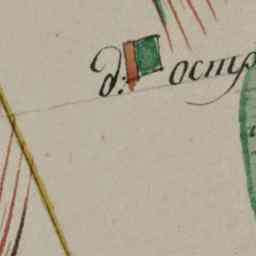 д: остр